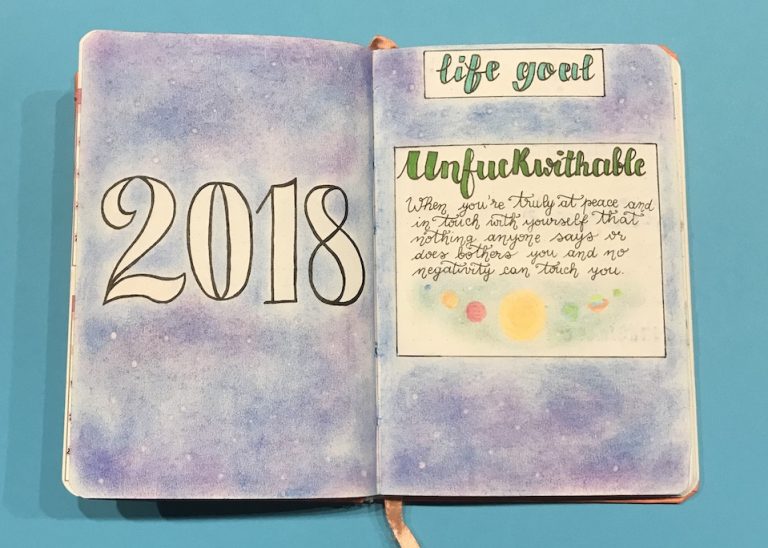 2018
life goal
Unfuckwithable
When you're truly at peace and
in touch with yourself that
nothing anyone says or
does bothers you and no
negativity can touch you.